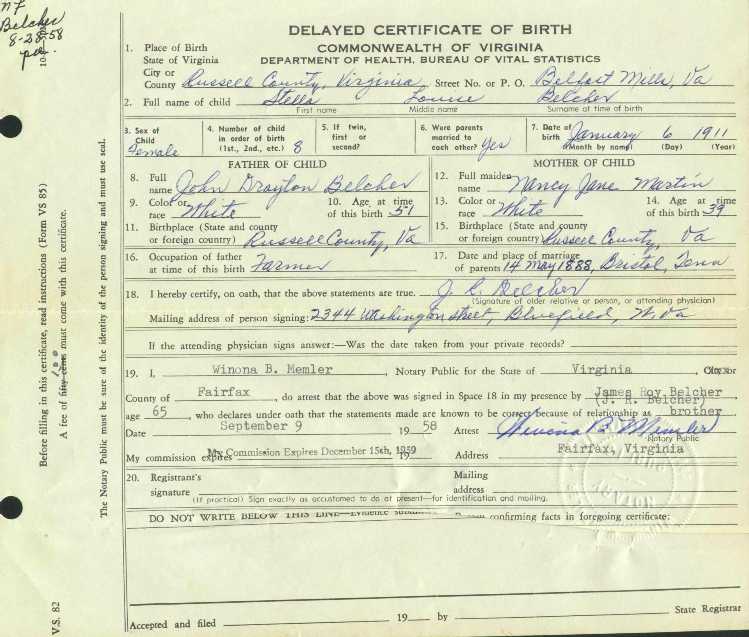 Belcher
8-28-58
DELAYED CERTIFICATE OF BIRTH
COMMONWEALTH OF VIRGINIA
DEPARTMENT OF HEALTH, BUREAU OF VITAL STATISTICS
1. Place of Birth
State of Virginia
City or
County Russell County, Virginia Street No. or P. O. Belfast Mills, Va
2. Full name of child Stella Louise Belcher
First name Middle name Surname at time of birth
3. Sex of Child Female
4. Number of child in order of birth (1st, 2nd, etc.) 8
5. If twin, first or second?
6. Were parents married to each other? Yes
7. Date of Birth January 6 1911
(Month by name) (Day) (Year)
FATHER OF CHILD
MOTHER OF CHILD
8. Full name John Drayton Belcher
12. Full maiden name Nancy Jane Martin
9. Color or race White
10. Age at time of this birth 51
13. Color or race White
14. Age at time of this birth 39
11. Birthplace (State and county or foreign country) Russell County, Va
15. Birthplace (State and county or foreign country) Russell County, Va
16. Occupation of father at time of this birth Farmer
17. Date and place of marriage of parents 14 May 1888, Bristol, Tenn
18. I hereby certify, on oath, that the above statements are true. J. R. Belcher
(Signature of older relative or person, or attending physician)
Mailing address of person signing: 2344 Washington street, Bluefield, W. Va
If the attending physician signs answer:—Was the date taken from your private records?
19. I, Winona B. Memler, Notary Public for the State of Virginia
County of Fairfax, do attest that the above was signed in Space 18 in my presence by James Roy Belcher
(J. R. Belcher)
age 65, who declares under oath that the statements made are known to be correct because of relationship as brother
Date September 9 1958 Attest Winona B. Memler
Notary Public
My commission expires My Commission Expires December 15th, 1959 19 Address Fairfax, Virginia
20. Registrant's signature
Mailing address
(If practical) Sign exactly as accustomed to do at present—for identification and mailing.
DO NOT WRITE BELOW THIS LINE—Evidence confirming facts in foregoing certificate:
Accepted and filed 19 by State Registrar
Before filling in this certificate, read instructions (Form VS 85)
A fee of fifty cents 1.00 must come with this certificate.
The Notary Public must be sure of the identity of the person signing and must use seal.
V.S. 82